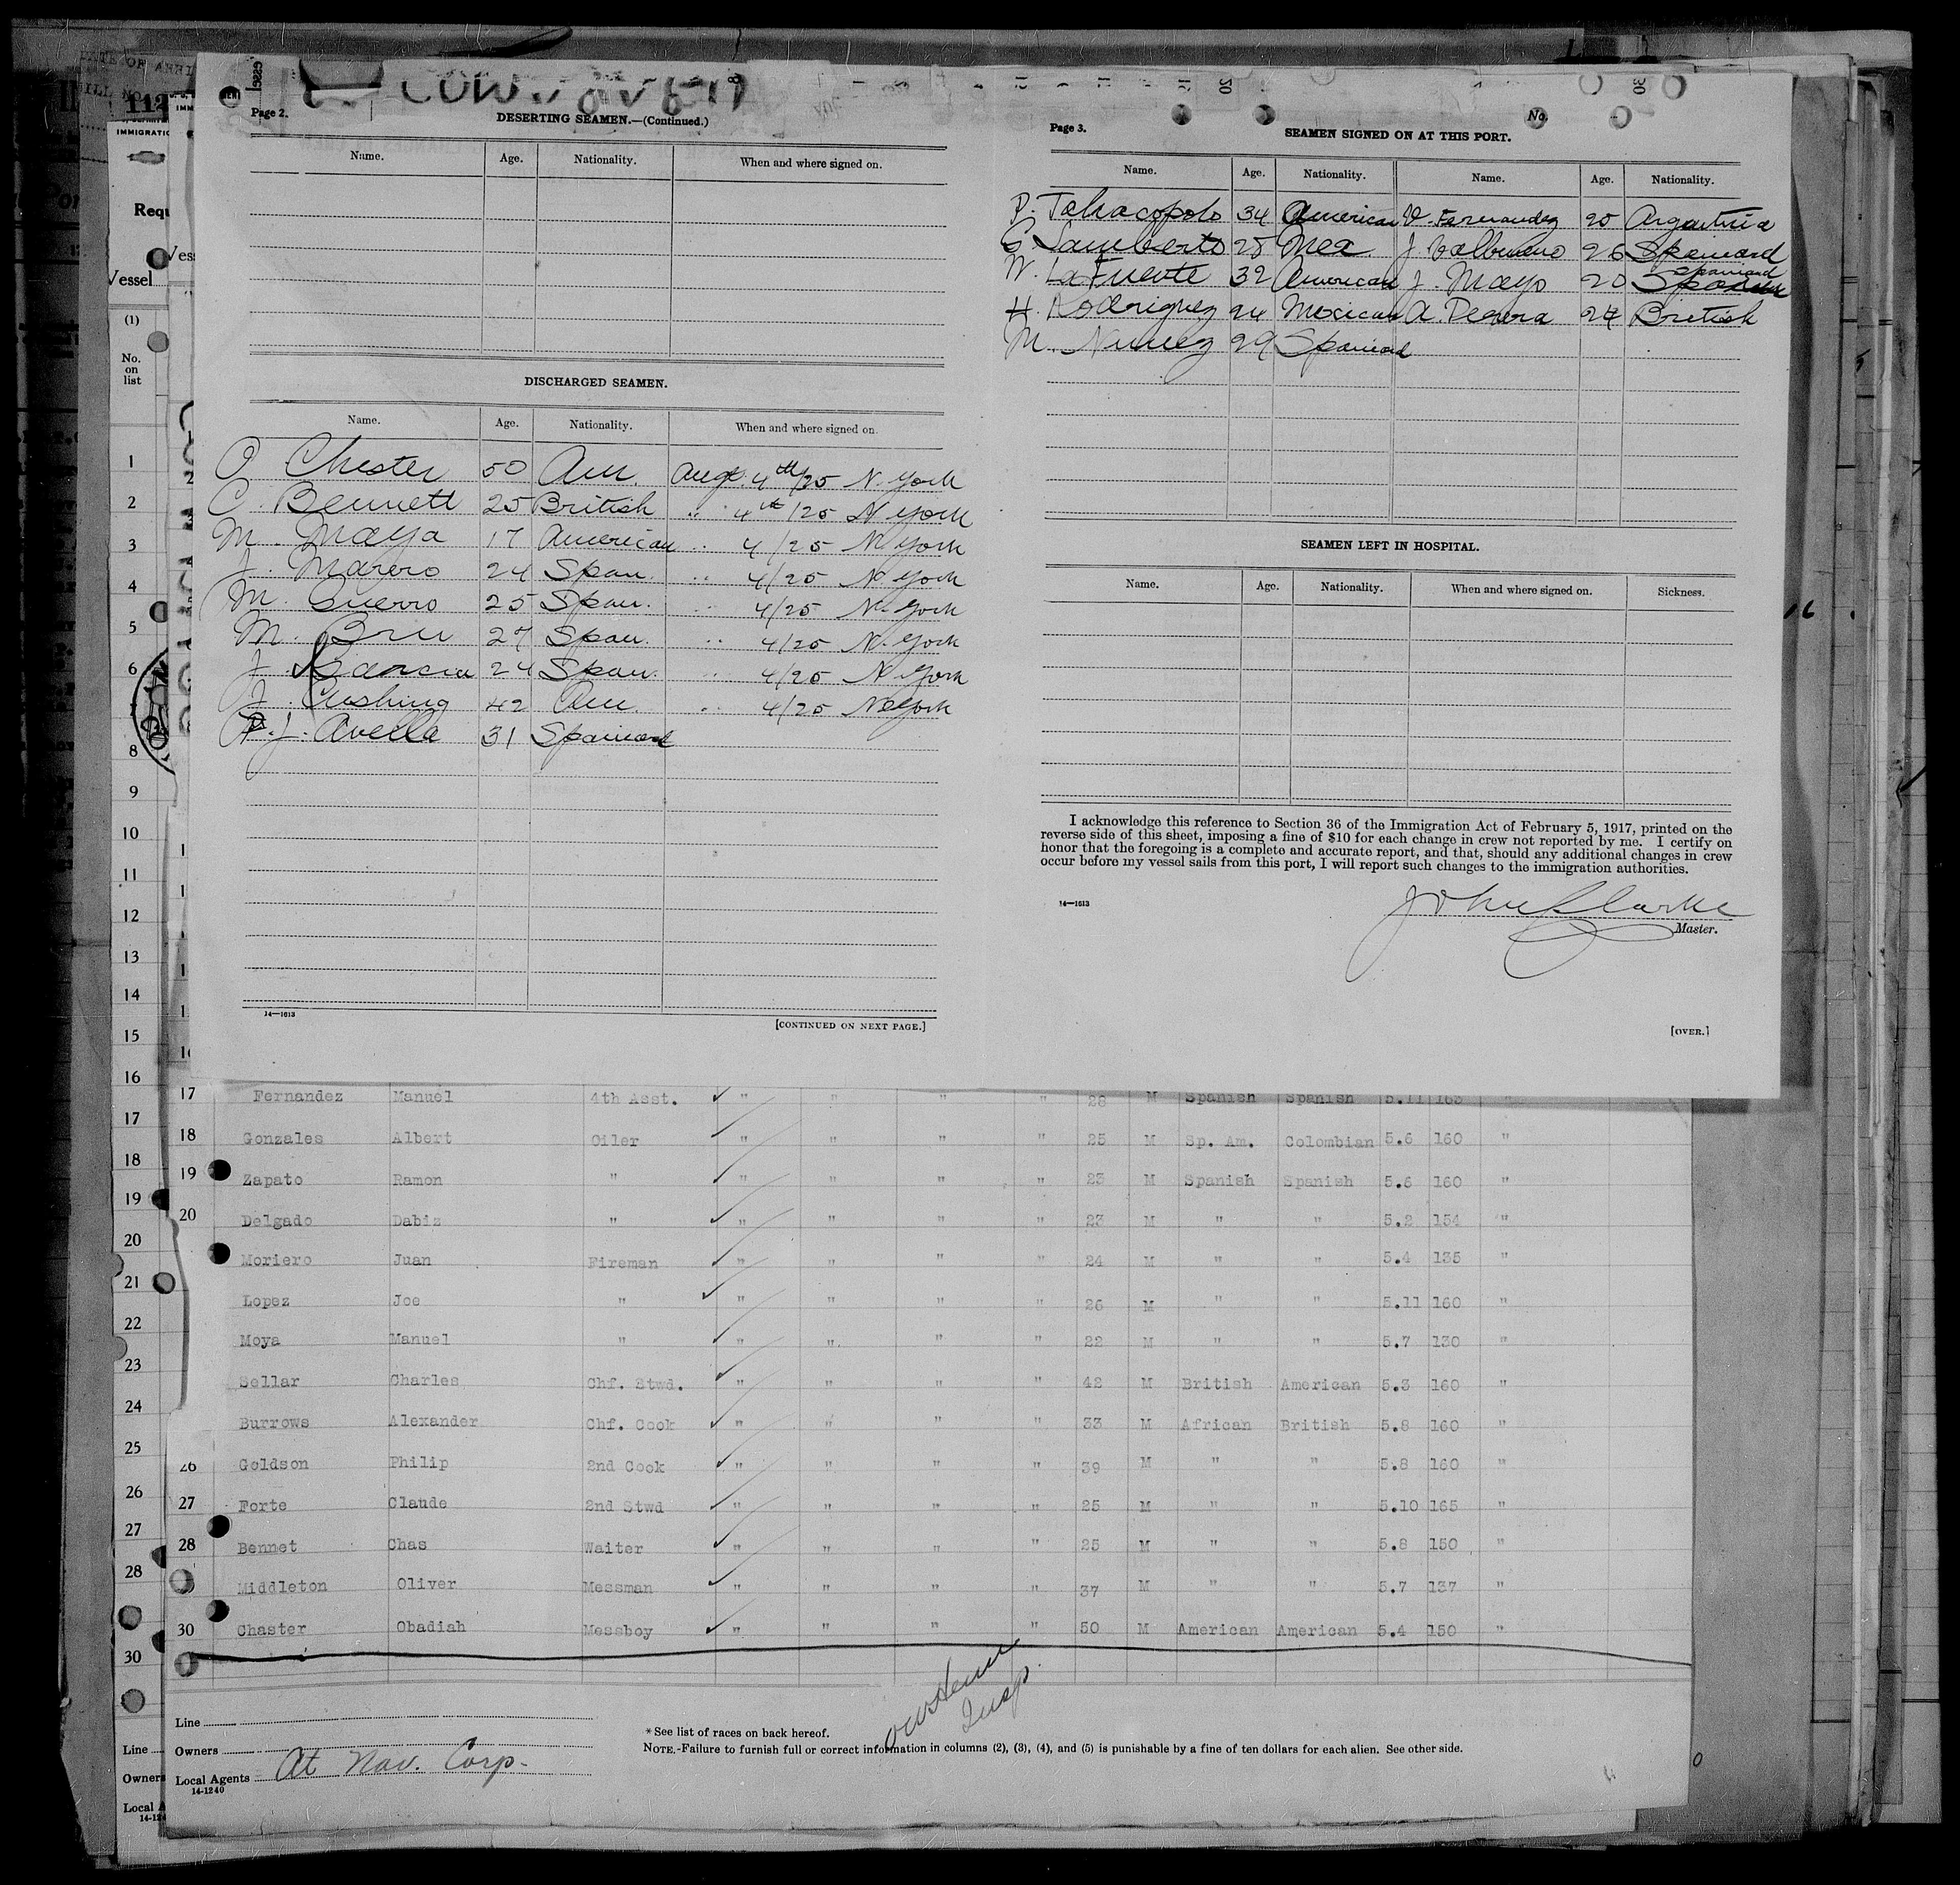 Page 2.
DESERTING SEAMEN.—(Continued.)
Name. Age. Nationality. When and where signed on.
DISCHARGED SEAMEN.
Name. Age. Nationality. When and where signed on.
O Chester 50 Am. Augt. 4th/25 N. York
C. Bennett 25 British " 4th/25 N York
M. Maya 17 American " 4/25 N York
J. Marero 24 Span. " 4/25 N. York
M. Guerro 25 Span. " 4/25 N. York
M. Bru 27 Span. " 4/25 N. York
J. Garcia 24 Span. " 4/25 N. York
J. Cushing 42 Am. " 4/25 N York
P. J. Avella 31 Spaniard
14—1613
[CONTINUED ON NEXT PAGE.]
Page 3.
No.
SEAMEN SIGNED ON AT THIS PORT.
Name. Age. Nationality. Name. Age. Nationality.
P. 34 American V. Fernandez 20 Argantina
G. Lamberto 25 Mex J. Valbueno 26 Spaniard
W. La Fuente 32 American J. Mayo 20 Spaniard
H. Rodriguez 24 Mexican A. 24 British
M. Nunez 29 Spaniard
SEAMEN LEFT IN HOSPITAL.
Name. Age. Nationality. When and where signed on. Sickness.
I acknowledge this reference to Section 36 of the Immigration Act of February 5, 1917, printed on the
reverse side of this sheet, imposing a fine of $10 for each change in crew not reported by me. I certify on
honor that the foregoing is a complete and accurate report, and that, should any additional changes in crew
occur before my vessel sails from this port, I will report such changes to the immigration authorities.
14—1613
John Clarke
Master.
[OVER.]
112
IMMIGRATIO
Requ
Vessel
(1)
No.
on
list
1
2
3
4
5
6
7
8
9
10
11
12
13
14
15
16
17
18
19
20
21
22
23
24
25
26
27
28
30
17 Fernandez Manuel 4th Asst. " " " " 28 M Spanish Spanish 5.11 163 "
18 Gonzales Albert Oiler " " " " 25 M Sp. Am. Colombian 5.6 160 "
19 Zapato Ramon " " " " " 23 M Spanish Spanish 5.6 160 "
20 Delgado Dabiz " " " " " 23 M " " 5.2 154 "
Moriero Juan Fireman " " " " 24 M " " 5.4 135 "
Lopez Joe " " " " " 26 M " " 5.11 160 "
Moya Manuel " " " " " 22 M " " 5.7 130 "
Sellar Charles Chf. Stwd. " " " " 42 M British American 5.3 160 "
Burrows Alexander Chf. Cook " " " " 33 M African British 5.8 160 "
26 Goldson Philip 2nd Cook " " " " 39 M " " 5.8 160 "
27 Forte Claude 2nd Stwd " " " " 25 M " " 5.10 165 "
28 Bennet Chas Waiter " " " " 25 M " " 5.8 150 "
Middleton Oliver Messman " " " " 37 M " " 5.7 137 "
30 Chaster Obadiah Messboy " " " " 50 M American American 5.4 150 "
Line
Owners
Local Agents At Nav. Corp.
14-1240
Insp.
*See list of races on back hereof.
NOTE.-Failure to furnish full or correct information in columns (2), (3), (4), and (5) is punishable by a fine of ten dollars for each alien. See other side.
Line
Owners
Local A